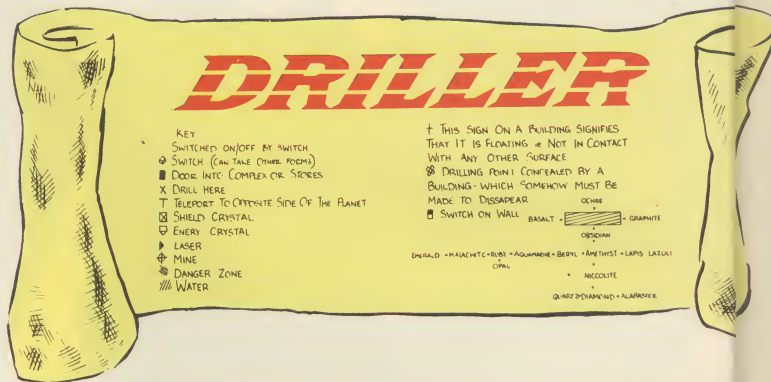 DRILLER
KEY
SWITCHED ON/OFF BY SWITCH
SWITCH (CAN TAKE OTHER FORMS)
DOOR INTO COMPLEX OR STORES
X DRILL HERE
T TELEPORT TO OPPOSITE SIDE OF THE PLANET
SHIELD CRYSTAL
ENERY CRYSTAL
LASER
MINE
DANGER ZONE
WATER
† THIS SIGN ON A BUILDING SIGNIFIES
THAT IT IS FLOATING ie NOT IN CONTACT
WITH ANY OTHER SURFACE
DRILLING POINT CONCEALED BY A
BUILDING - WHICH SOMEHOW MUST BE
MADE TO DISSAPEAR
SWITCH ON WALL
OCHRE
BASALT • • GRAPHITE
OBSIDIAN
EMERALD • MALACHITE • RUBY • AQUAMARINE • BERYL • AMETHYST • LAPIS LAZULI
OPAL
• NICCOLITE
QUARTZ • DIAMOND • ALABASTER